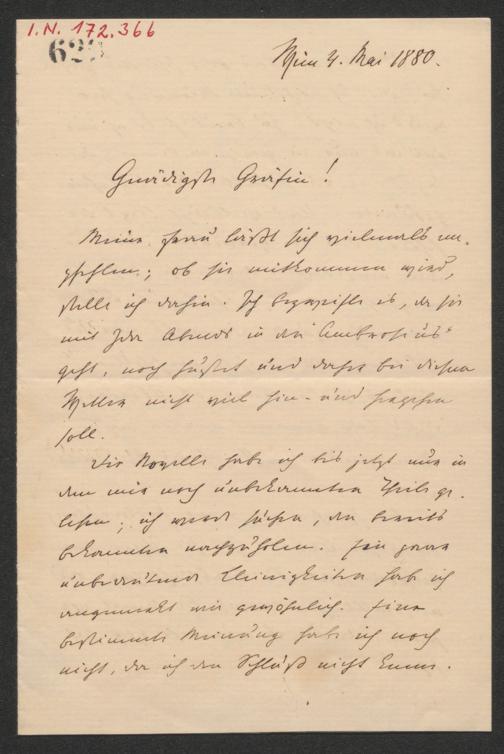 I.N. 172.366
62
Wien 4. Mai 1880.
Gnädigste Gräfin!
Meine Frau läßt sich vielmals em-
pfehlen; ob sie mitkommen wird,
stelle ich dahin. Ich bezweifle es, da sie
mit Ida Abends in den Ambrosius
geht, noch hustet und daher bei diesem
Wetter nicht viel hin- und hergehen
soll.
Die Novelle habe ich bis jetzt nur in
dem mir noch unbekannten Theile ge-
lesen; ich werde suchen, den bereits
bekannten nachzuholen. Ein paar
unbedeutende Kleinigkeiten hab ich
angemerkt wie gewöhnlich. Eine
bestimmte Meinung habe ich noch
nicht, da ich den Schluß nicht kenne.